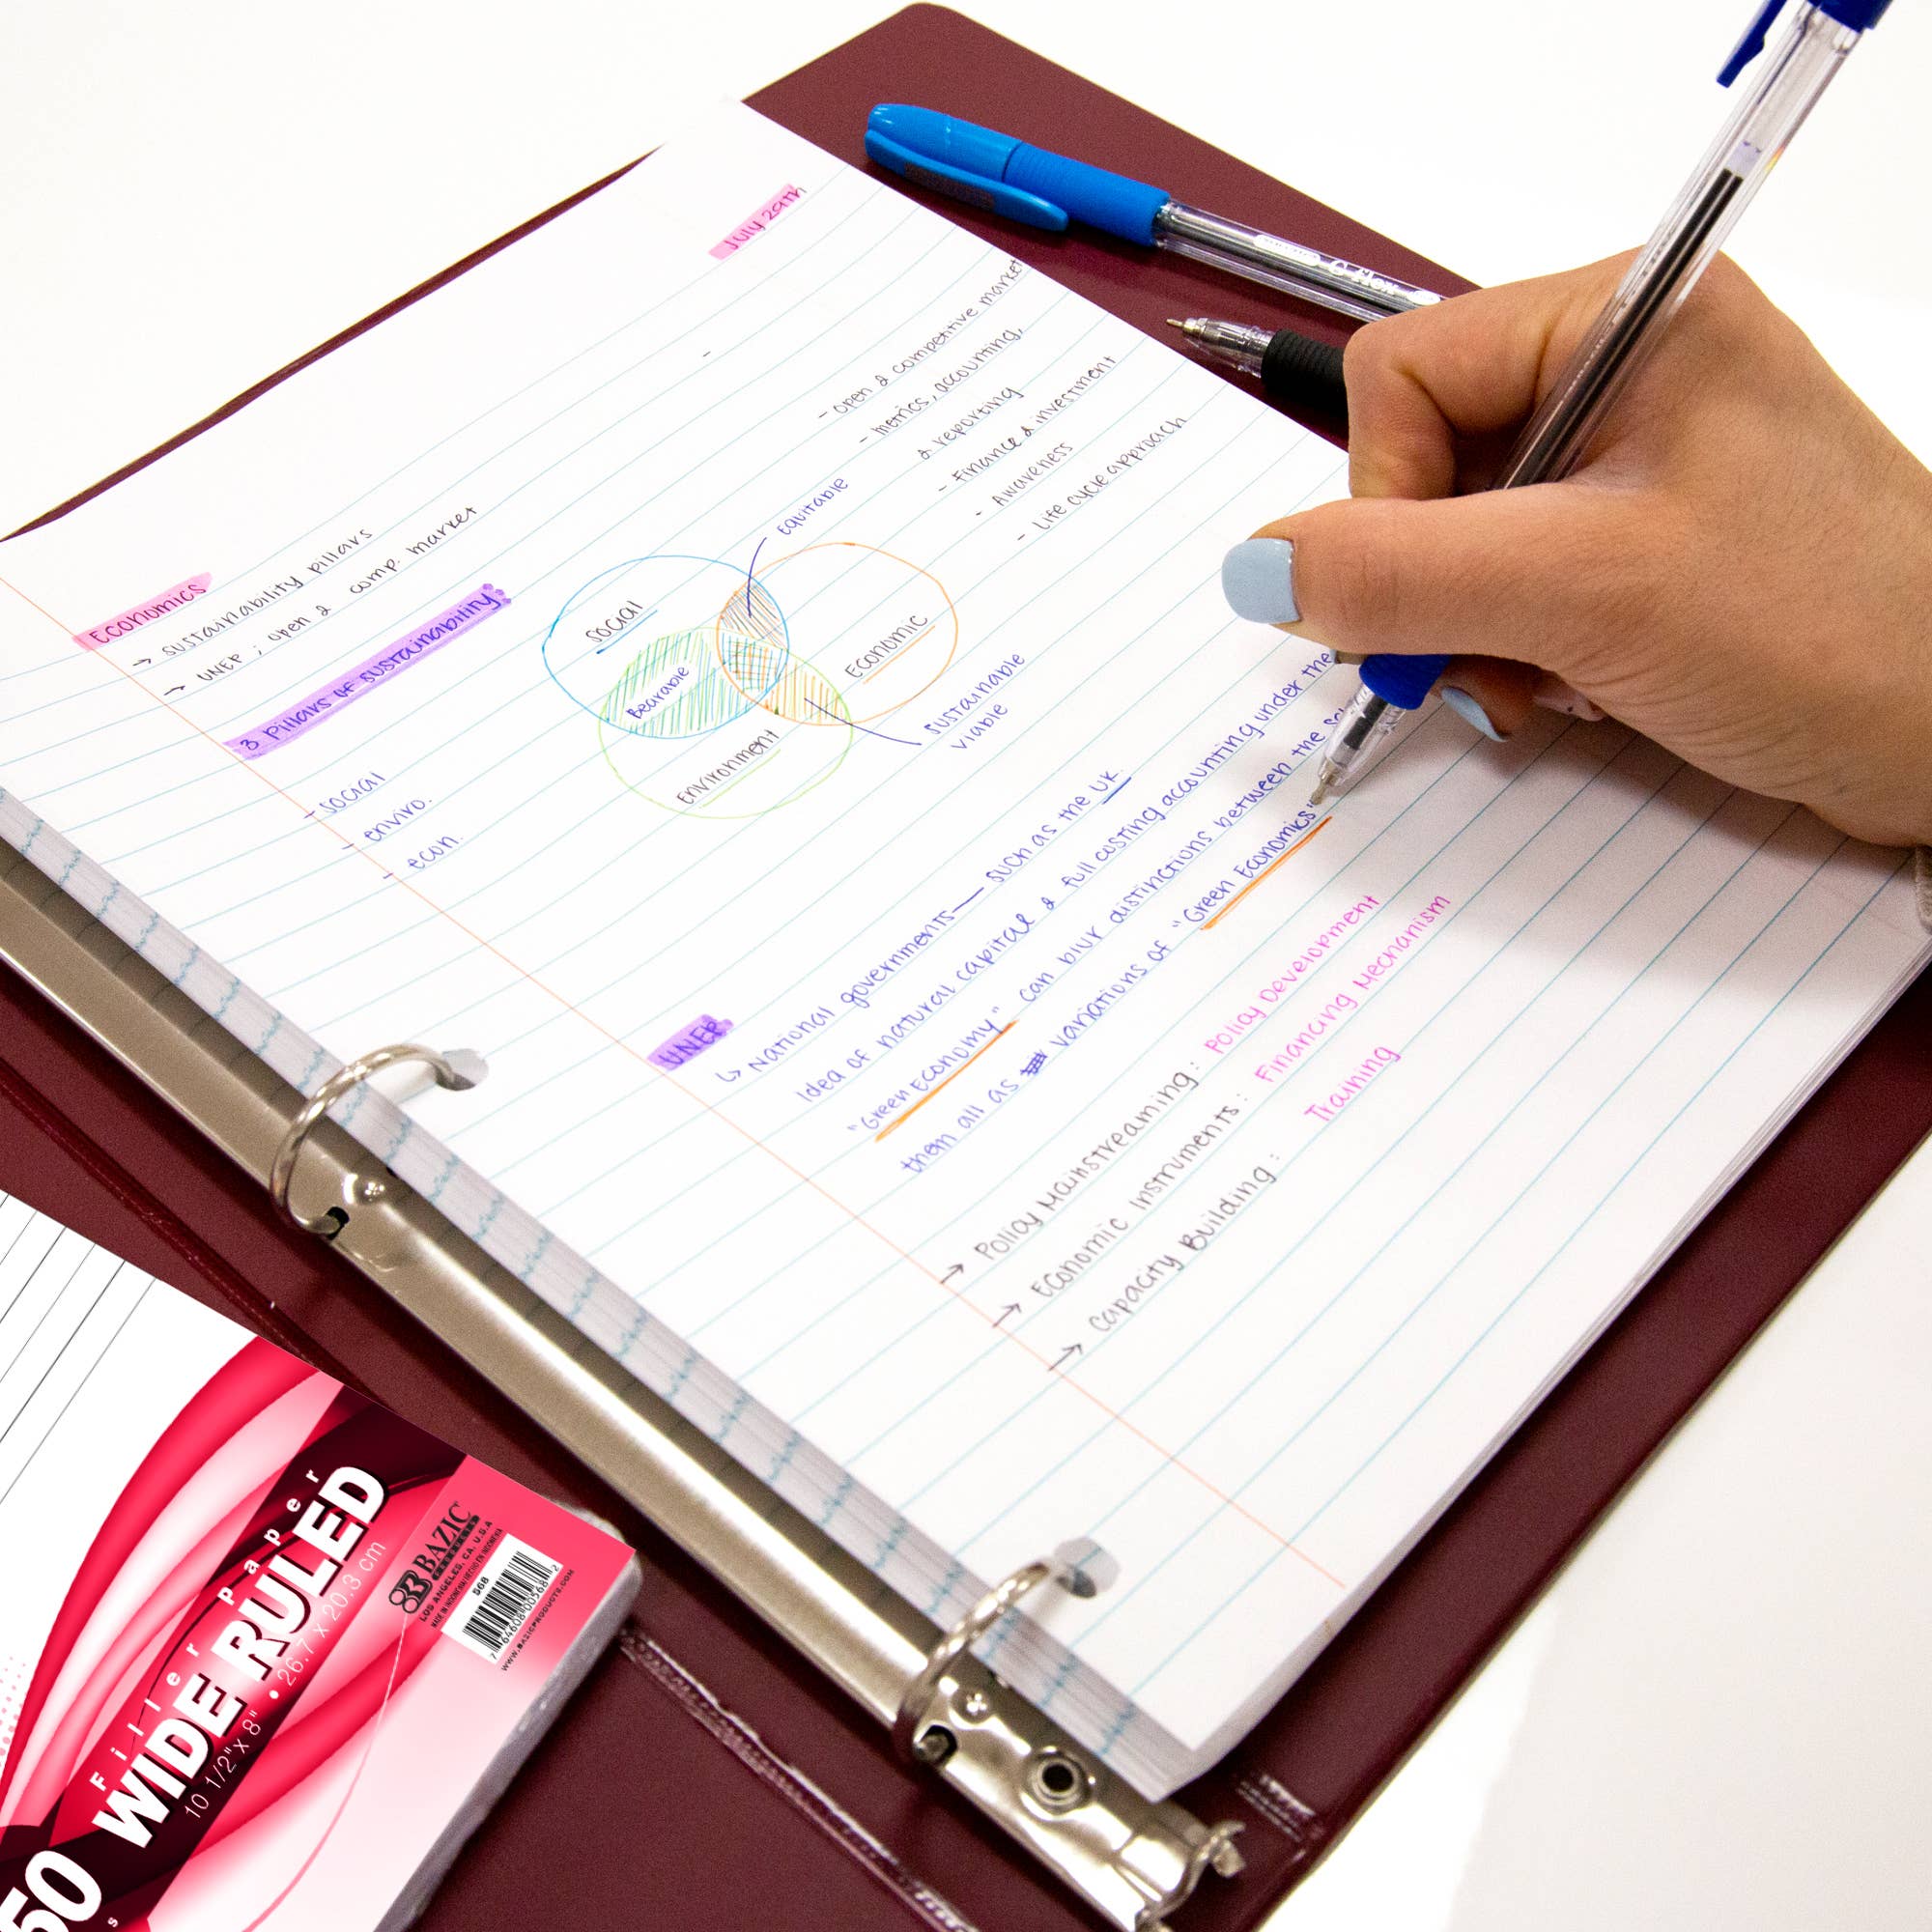 July 29th
Economics
→ sustainability pillars
→ UNEP ; open & comp. market
3 Pillars of sustainability
- social
- enviro.
- econ.
Social
Equitable
Economic
Bearable
Environment
Sustainable
Viable
- open & competitive market
- metrics, accounting,
& reporting
- Finance & investment
- Awareness
- Life cycle approach
UNEP
↳ National governments— such as the UK.
Idea of natural capital & full costing accounting under the
"Green Economy" can blur distinctions between the
them all as variations of "Green Economics"
→ Policy Mainstreaming : Policy Development
→ Economic Instruments : Financing Mechanism
→ Capacity Building : Training
Filler Paper
WIDE RULED
10 1/2" x 8" • 26.7 x 20.3 cm
BAZIC
PRODUCTS
LOS ANGELES, CA. U.S.A
MADE IN INDONESIA/HECHO EN INDONESIA
568
7 64608 00568 2
WWW.BAZICPRODUCTS.COM
50